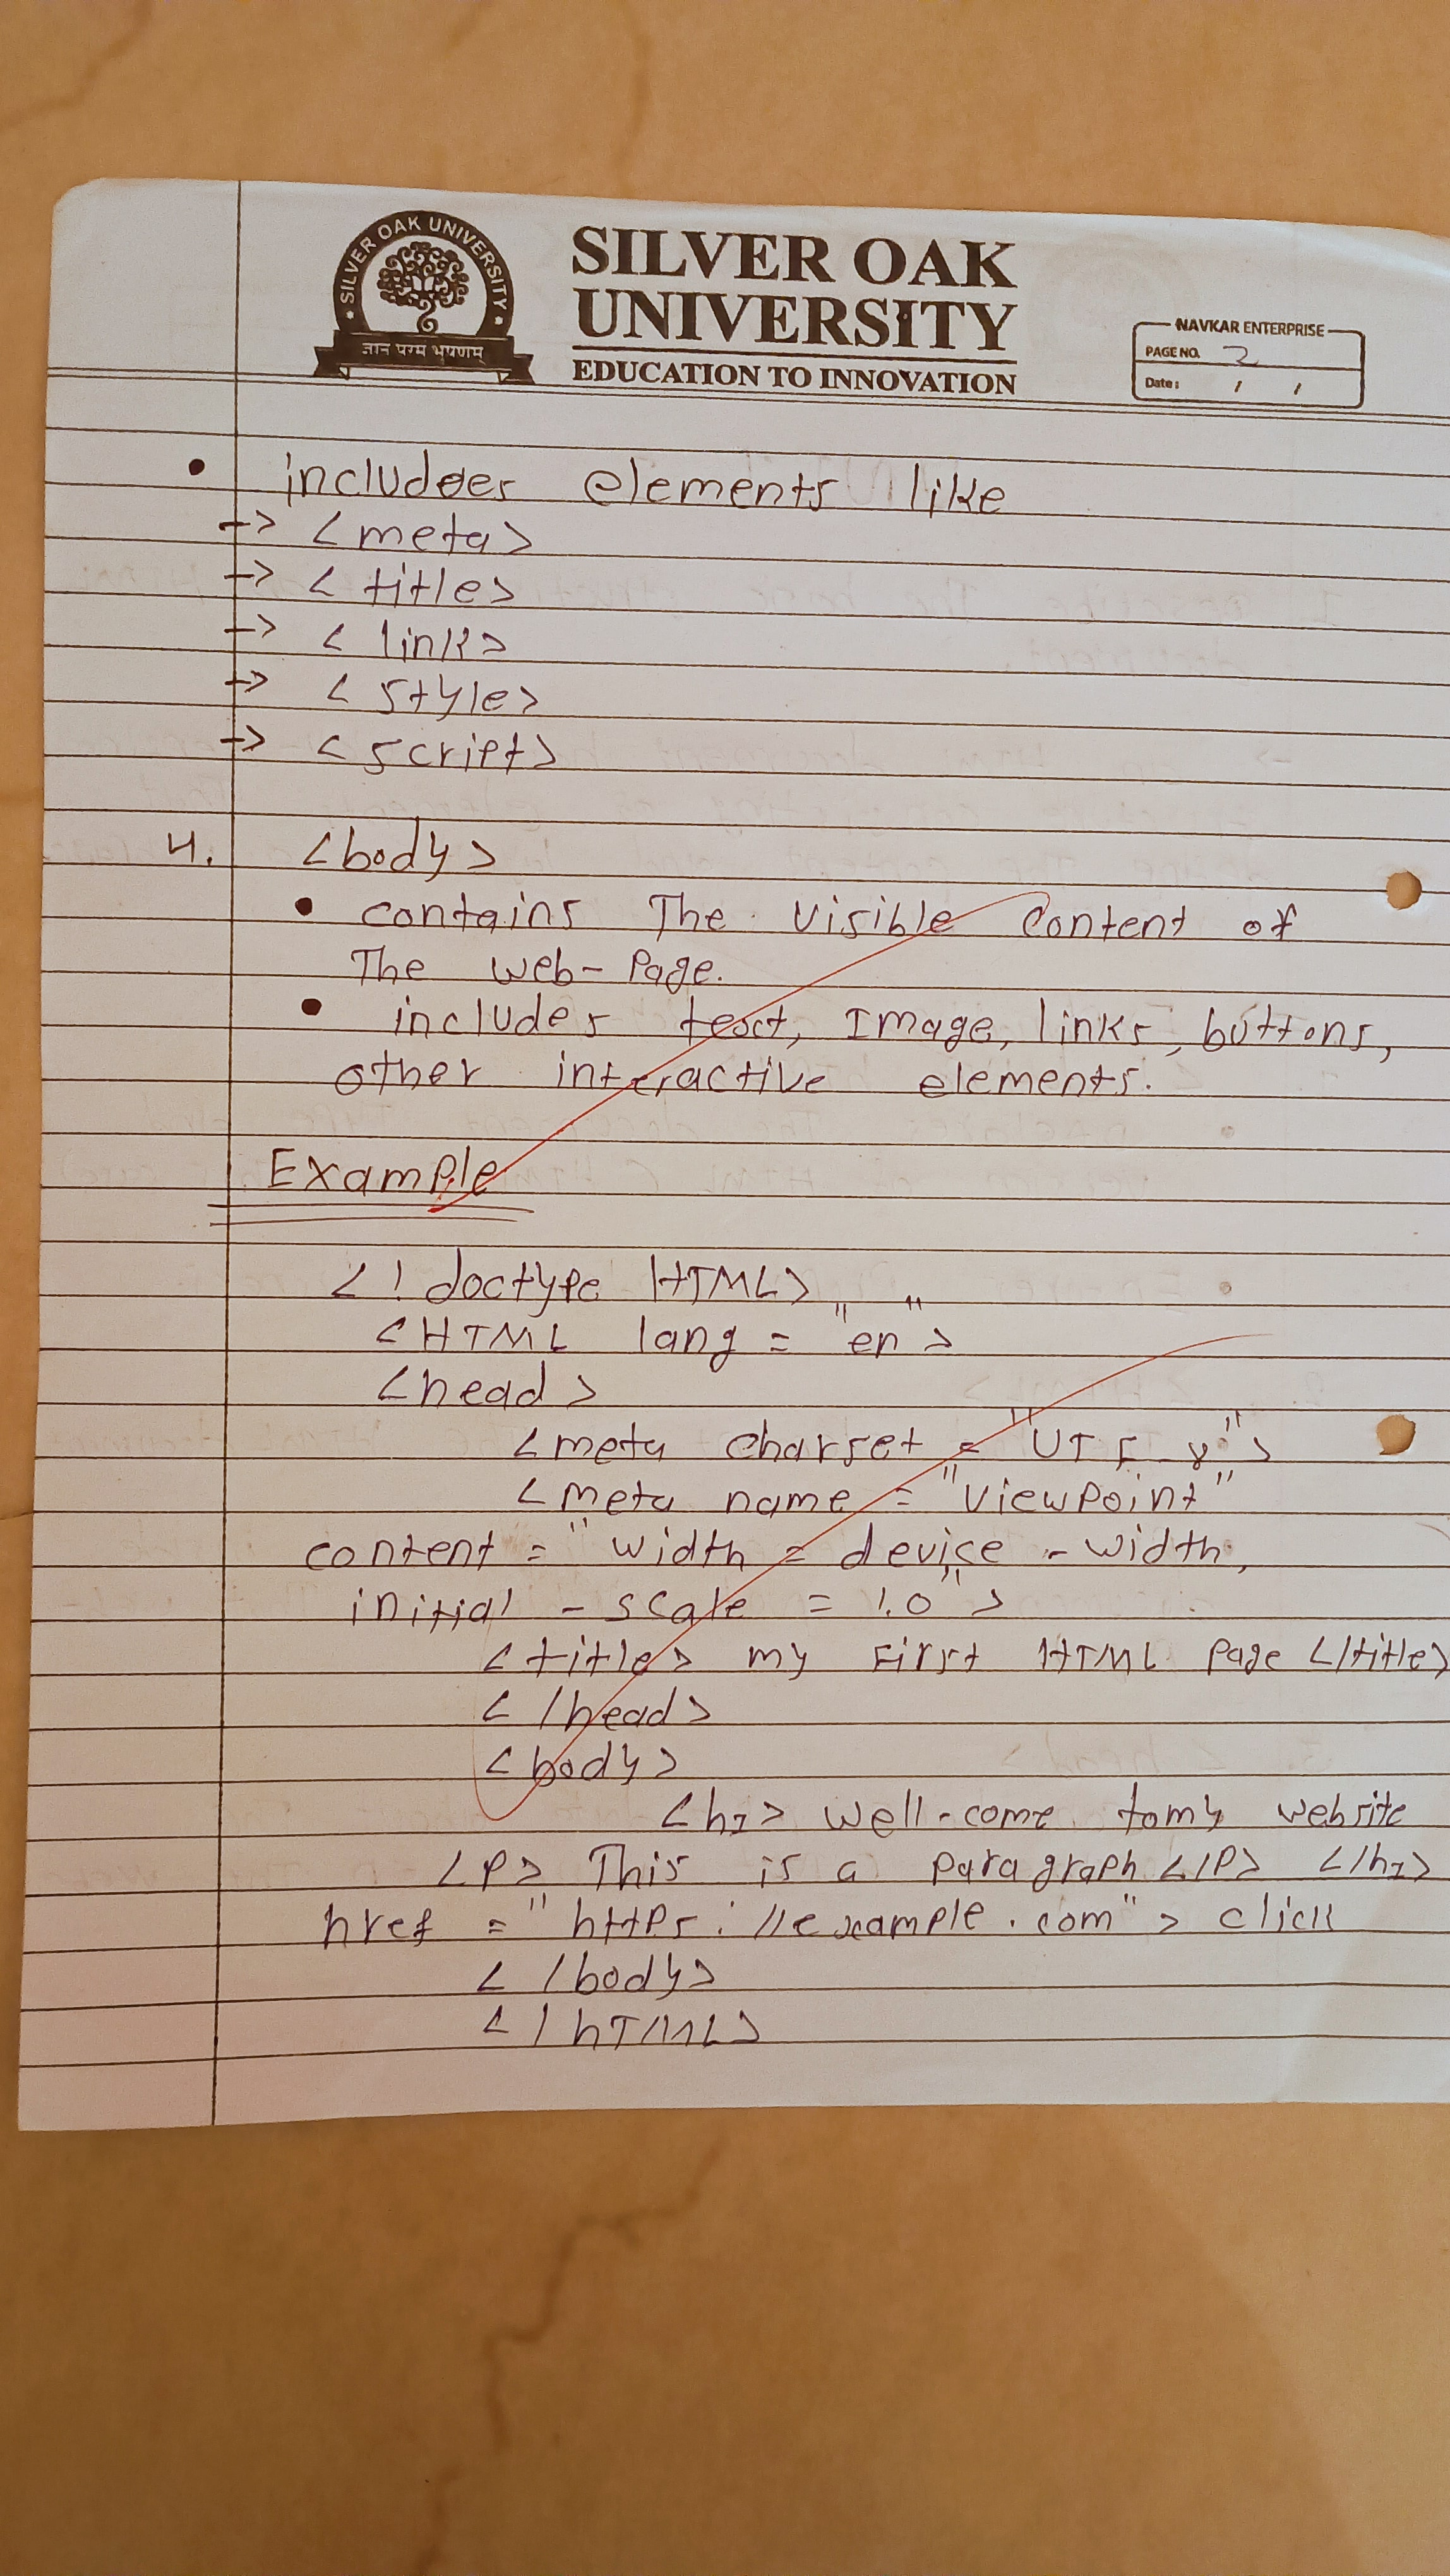 SILVER OAK UNIVERSITY
ज्ञान परम भूषणम्
SILVER OAK
UNIVERSITY
EDUCATION TO INNOVATION
NAVKAR ENTERPRISE
PAGE NO. 2
Date: / /
• includes elements like
-> <meta>
-> <title>
-> <link>
-> <style>
-> <script>
4. <body>
• contains The visible content of
The web-Page.
• includes text, Image, links, buttons,
other interactive elements.
Example
<! doctype HTML>
<HTML lang = "en">
<head>
<meta charset = "UTF-8">
<meta name = "viewPoint"
content = "width = device-width,
initial-scale = 1.0">
<title> my First HTML Page </title>
</head>
<body>
<h1> well-come tomy website
<P> This is a paragraph </P> </h1>
href = "https://example.com"> click
</body>
</hTML>